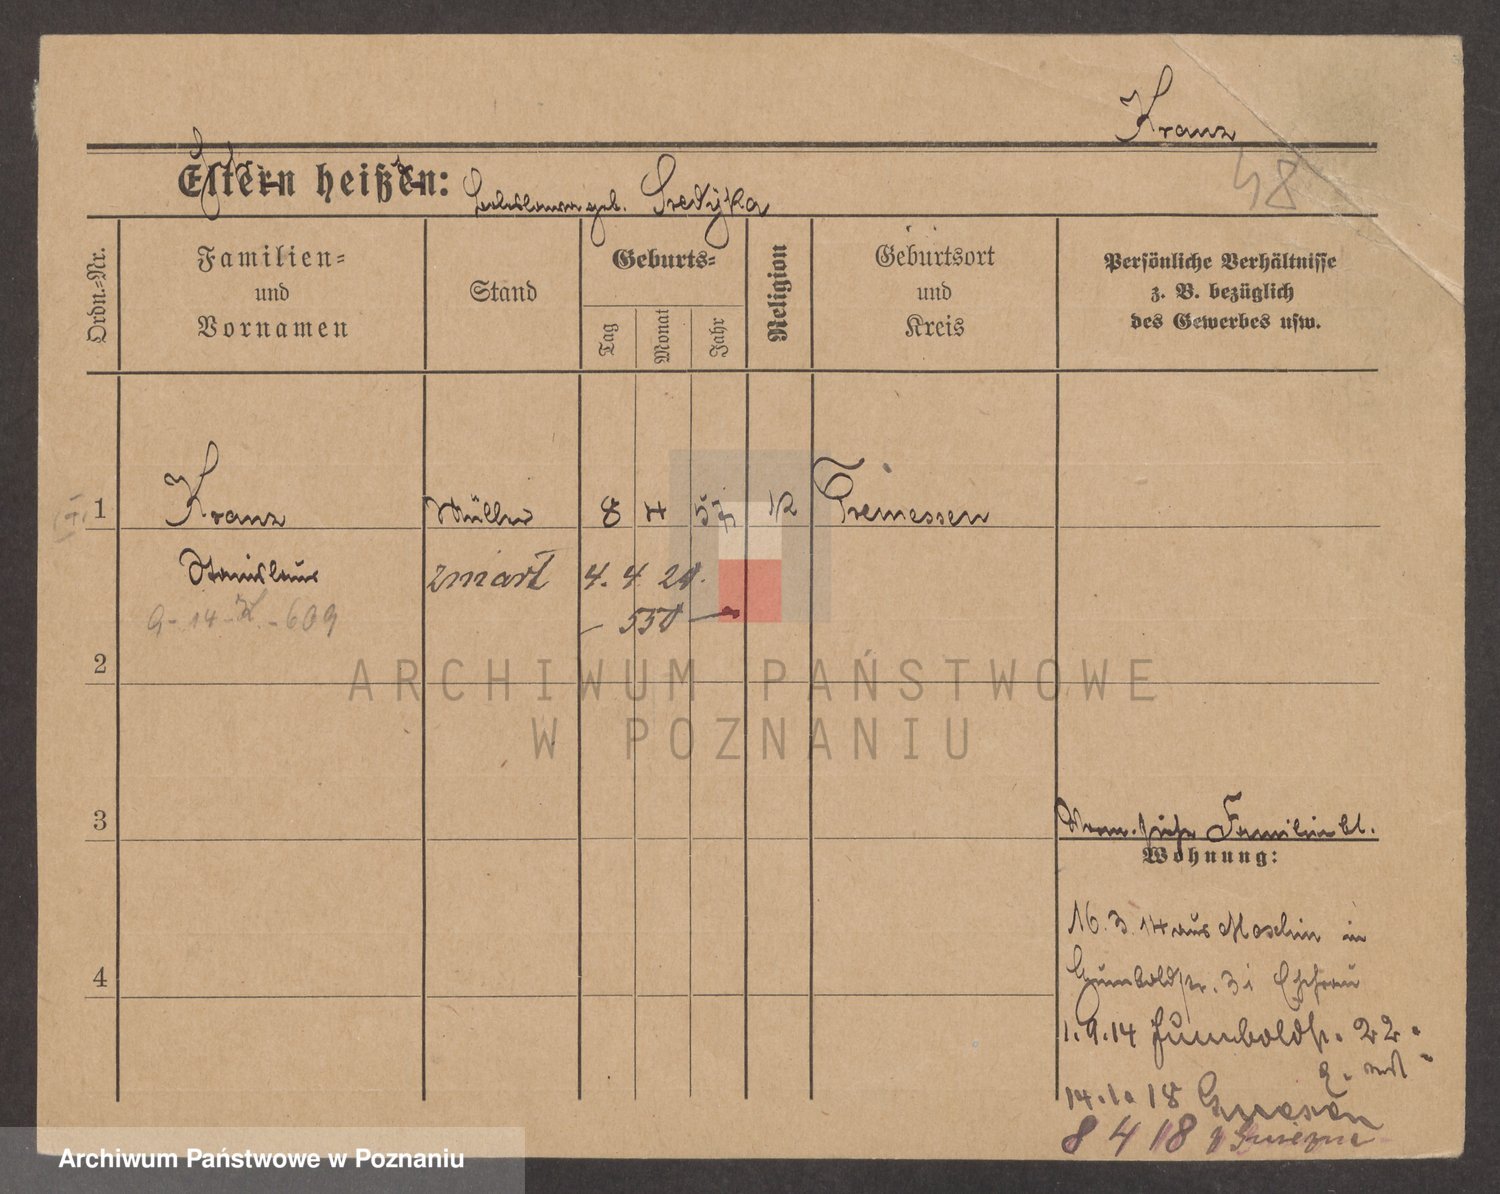 Kranz
48
Eltern heißen:
geb. Sredzka
Ordn.-Nr.
Familien-
und
Vornamen
Stand
Geburts-
Tag
Monat
Jahr
Religion
Geburtsort
und
Kreis
Persönliche Verhältnisse
z. B. bezüglich
des Gewerbes usw.
1
Kranz
Müller
8 4 57
K
Tremessen
Stanislaus
zmarł
4. 4 28.
558
9-14-K.-609
2
ARCHIWUM PAŃSTWOWE
W POZNANIU
3
siehe Familienbl.
Wohnung:
16.3.14 aus Moschin in
Humboldstr. 31 Ehefrau
1.9.14 Humboldstr. 22.
4
14.10 18 Gnesen
8 4 18 z Gniezna
Archiwum Państwowe w Poznaniu